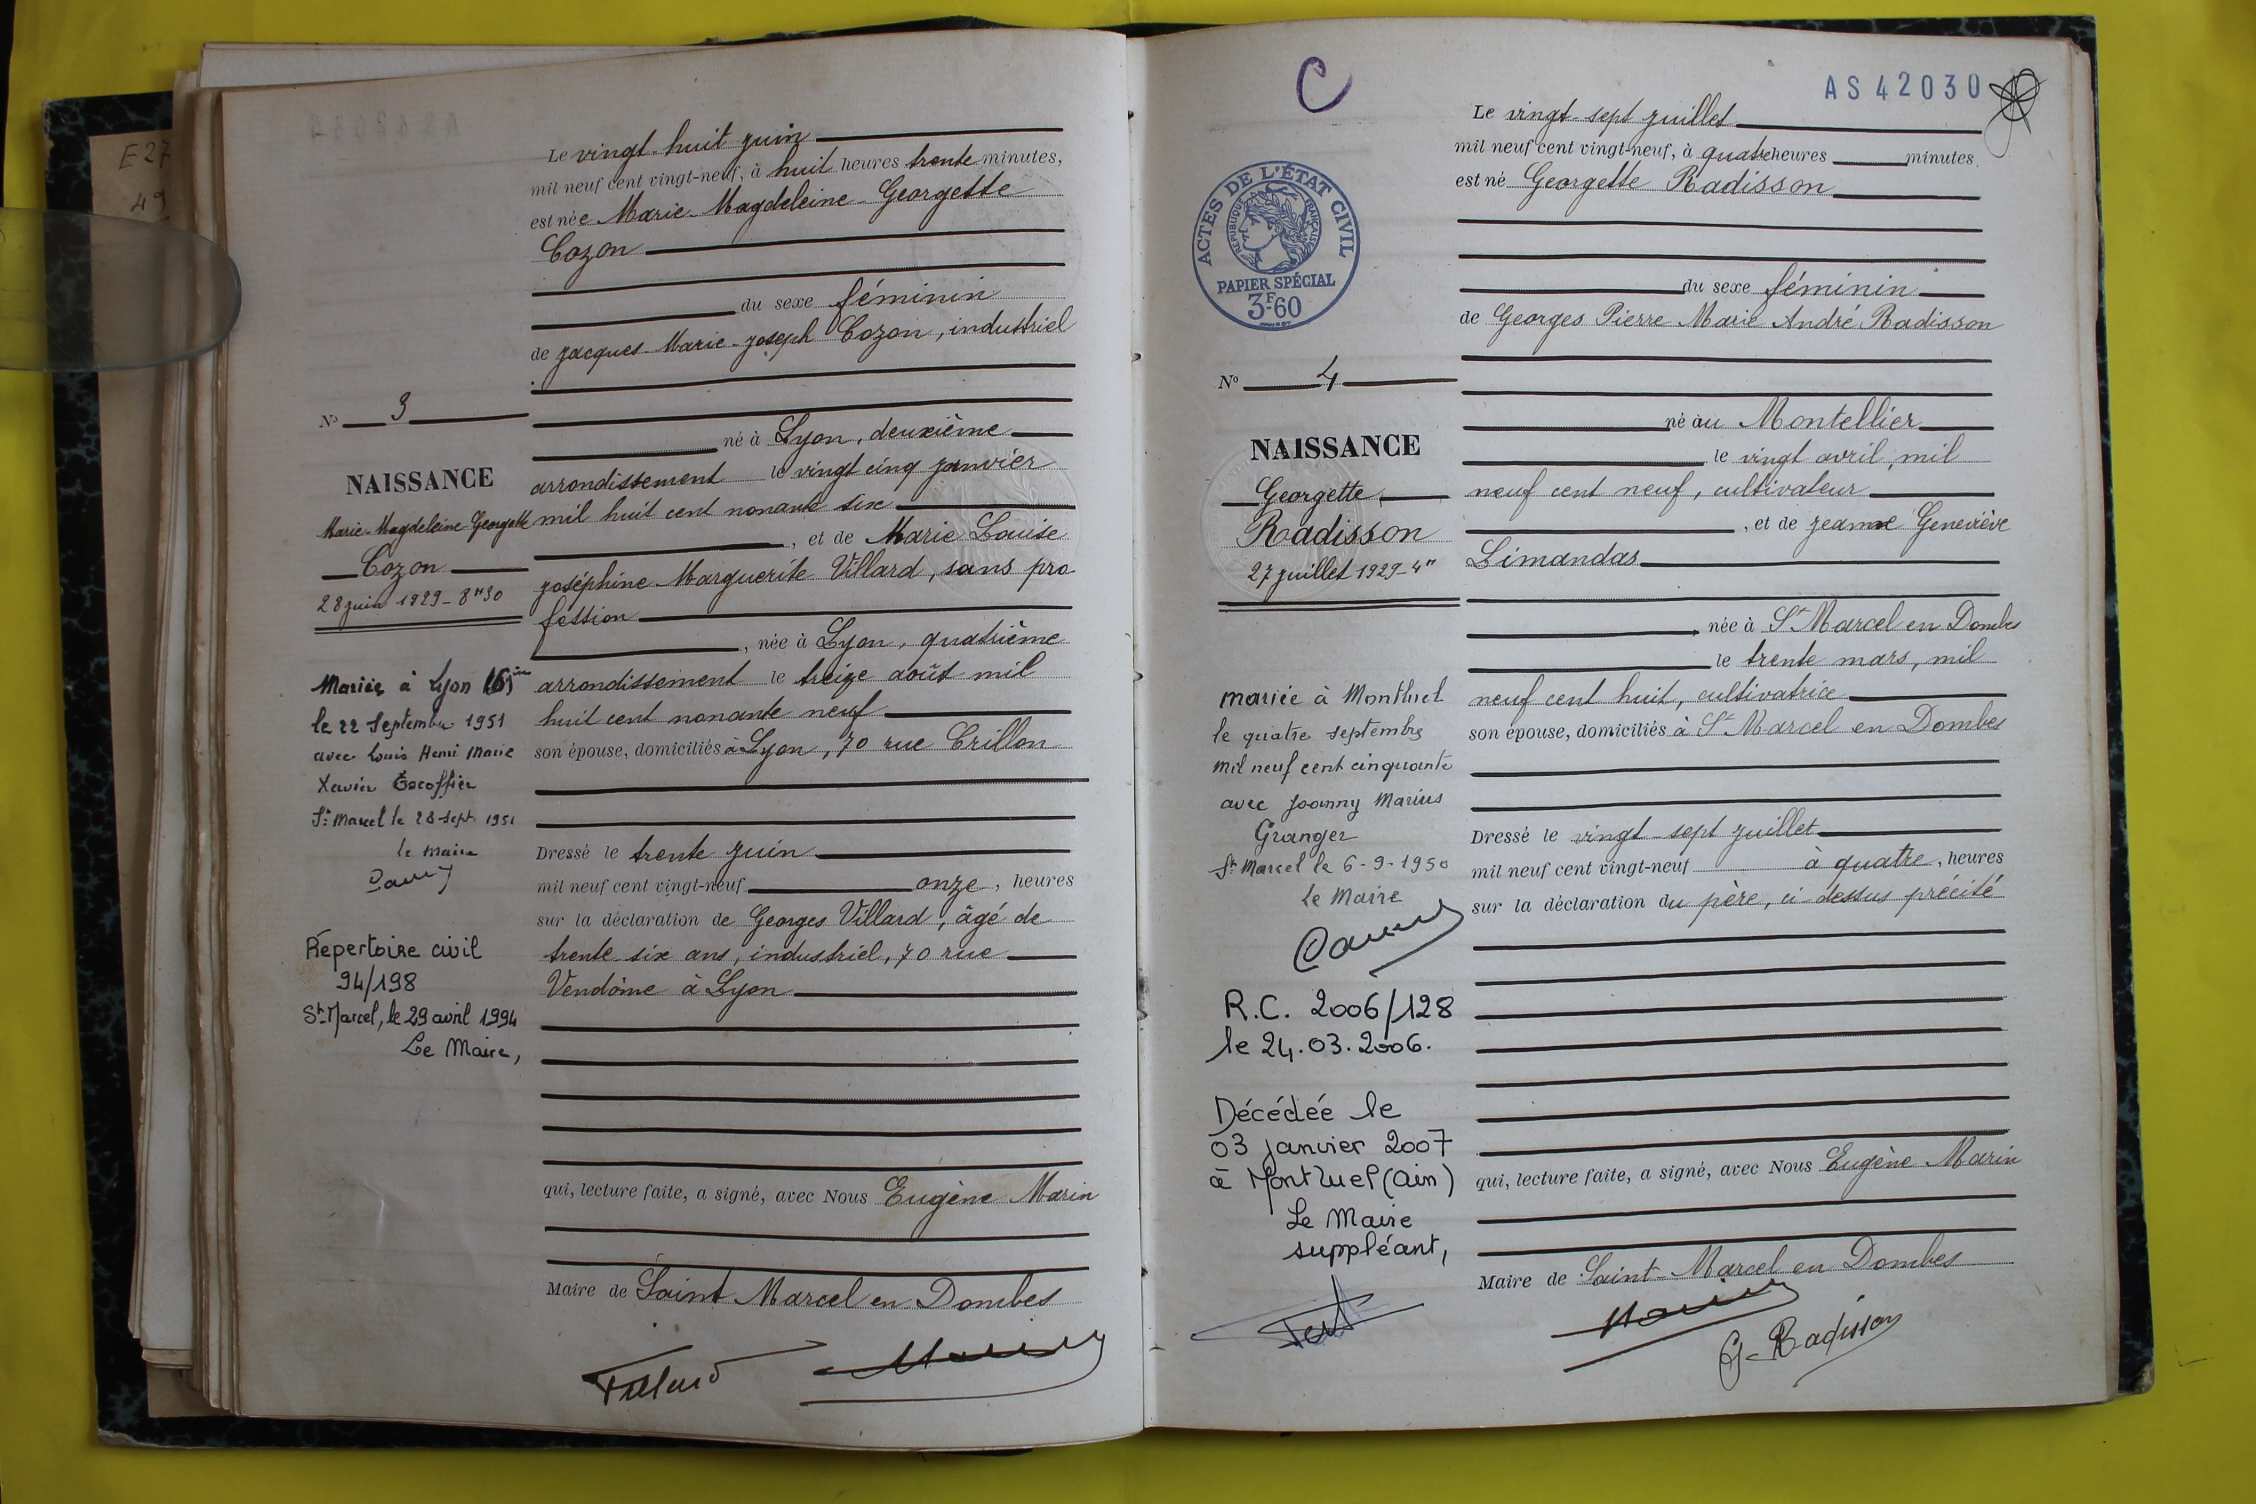 E27
49
Le vingt-huit juin
mil neuf cent vingt-neuf, à huit heures trente minutes,
est née Marie-Magdeleine-Georgette
Cozon
du sexe féminin
de Jacques-Marie-Joseph Cozon, industriel
né à Lyon, deuxième
arrondissement le vingt cinq janvier
mil huit cent nonante six
, et de Marie Louise
Joséphine Marguerite Villard, sans pro
fession
, née à Lyon, quatrième
arrondissement le treize août mil
huit cent nonante neuf
son épouse, domiciliés à Lyon, 70 rue Crillon
Dressé le trente juin
mil neuf cent vingt-neuf onze, heures
sur la déclaration de Georges Villard, âgé de
trente six ans, industriel, 70 rue
Vendôme à Lyon
qui, lecture faite, a signé, avec Nous Eugène Marin
Maire de Saint Marcel en Dombes
Villard
Marin
No 3
NAISSANCE
Marie-Magdeleine-Georgette
Cozon
28 juin 1929 - 8h30
Mariée à Lyon (6)ème
le 22 Septembre 1951
avec Louis Henri Marie
Xavier Escoffier
St Marcel le 28 sept. 1951
le maire
Répertoire civil
94/198
St-Marcel, le 29 avril 1994
Le Maire,
C
AS 42030
ACTES DE L'ÉTAT CIVIL
RÉPUBLIQUE FRANÇAISE
PAPIER SPÉCIAL
3F-60
No 4
NAISSANCE
Georgette
Radisson
27 juillet 1929 - 4h
mariée à Montluel
le quatre septembre
mil neuf cent cinquante
avec Joanny Marius
Granger
St Marcel le 6-9-1950
le Maire
R.C. 2006/128
le 24.03.2006.
Décédée le
03 janvier 2007
à Montluel (Ain)
Le Maire
suppléant,
Le vingt-sept juillet
mil neuf cent vingt-neuf, à quatre heures minutes
est né Georgette Radisson
du sexe féminin
de Georges Pierre Marie André Radisson
né au Montellier
le vingt avril, mil
neuf cent neuf, cultivateur
, et de Jeanne Geneviève
Limandas
née à St Marcel en Dombes
le trente mars, mil
neuf cent huit, cultivatrice
son épouse, domiciliés à St Marcel en Dombes
Dressé le vingt-sept juillet
mil neuf cent vingt-neuf à quatre, heures
sur la déclaration du père, ci-dessus précité
qui, lecture faite, a signé, avec Nous Eugène Marin
Maire de Saint-Marcel en Dombes
Marin
G. Radisson